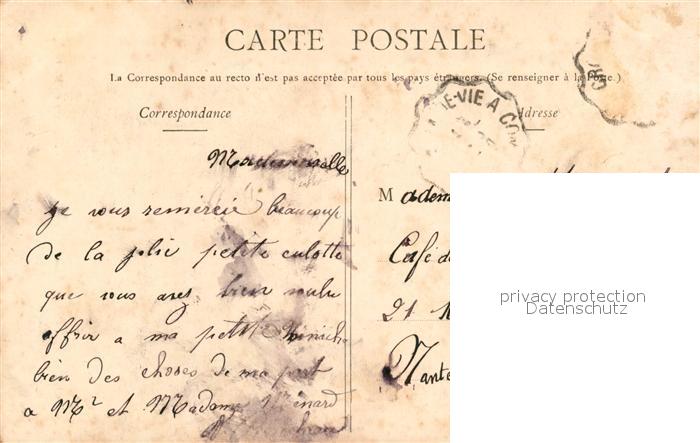 CARTE POSTALE
La Correspondance au recto n'est pas acceptée par tous les pays étrangers. (Se renseigner à la Poste.)
Correspondance
Adresse
IE-VIE A CON
Mademoiselle
je vous remercie beaucoup
de la jolie petite culotte
que vous avez bien voulu
offrir a ma petite
bien des choses de ma part
a Mr et Madame Ménard
Madem
Café de
21
Nante
privacy protection
Datenschutz